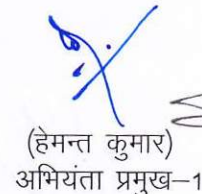 (हेमन्त कुमार)
अभियंता प्रमुख–1